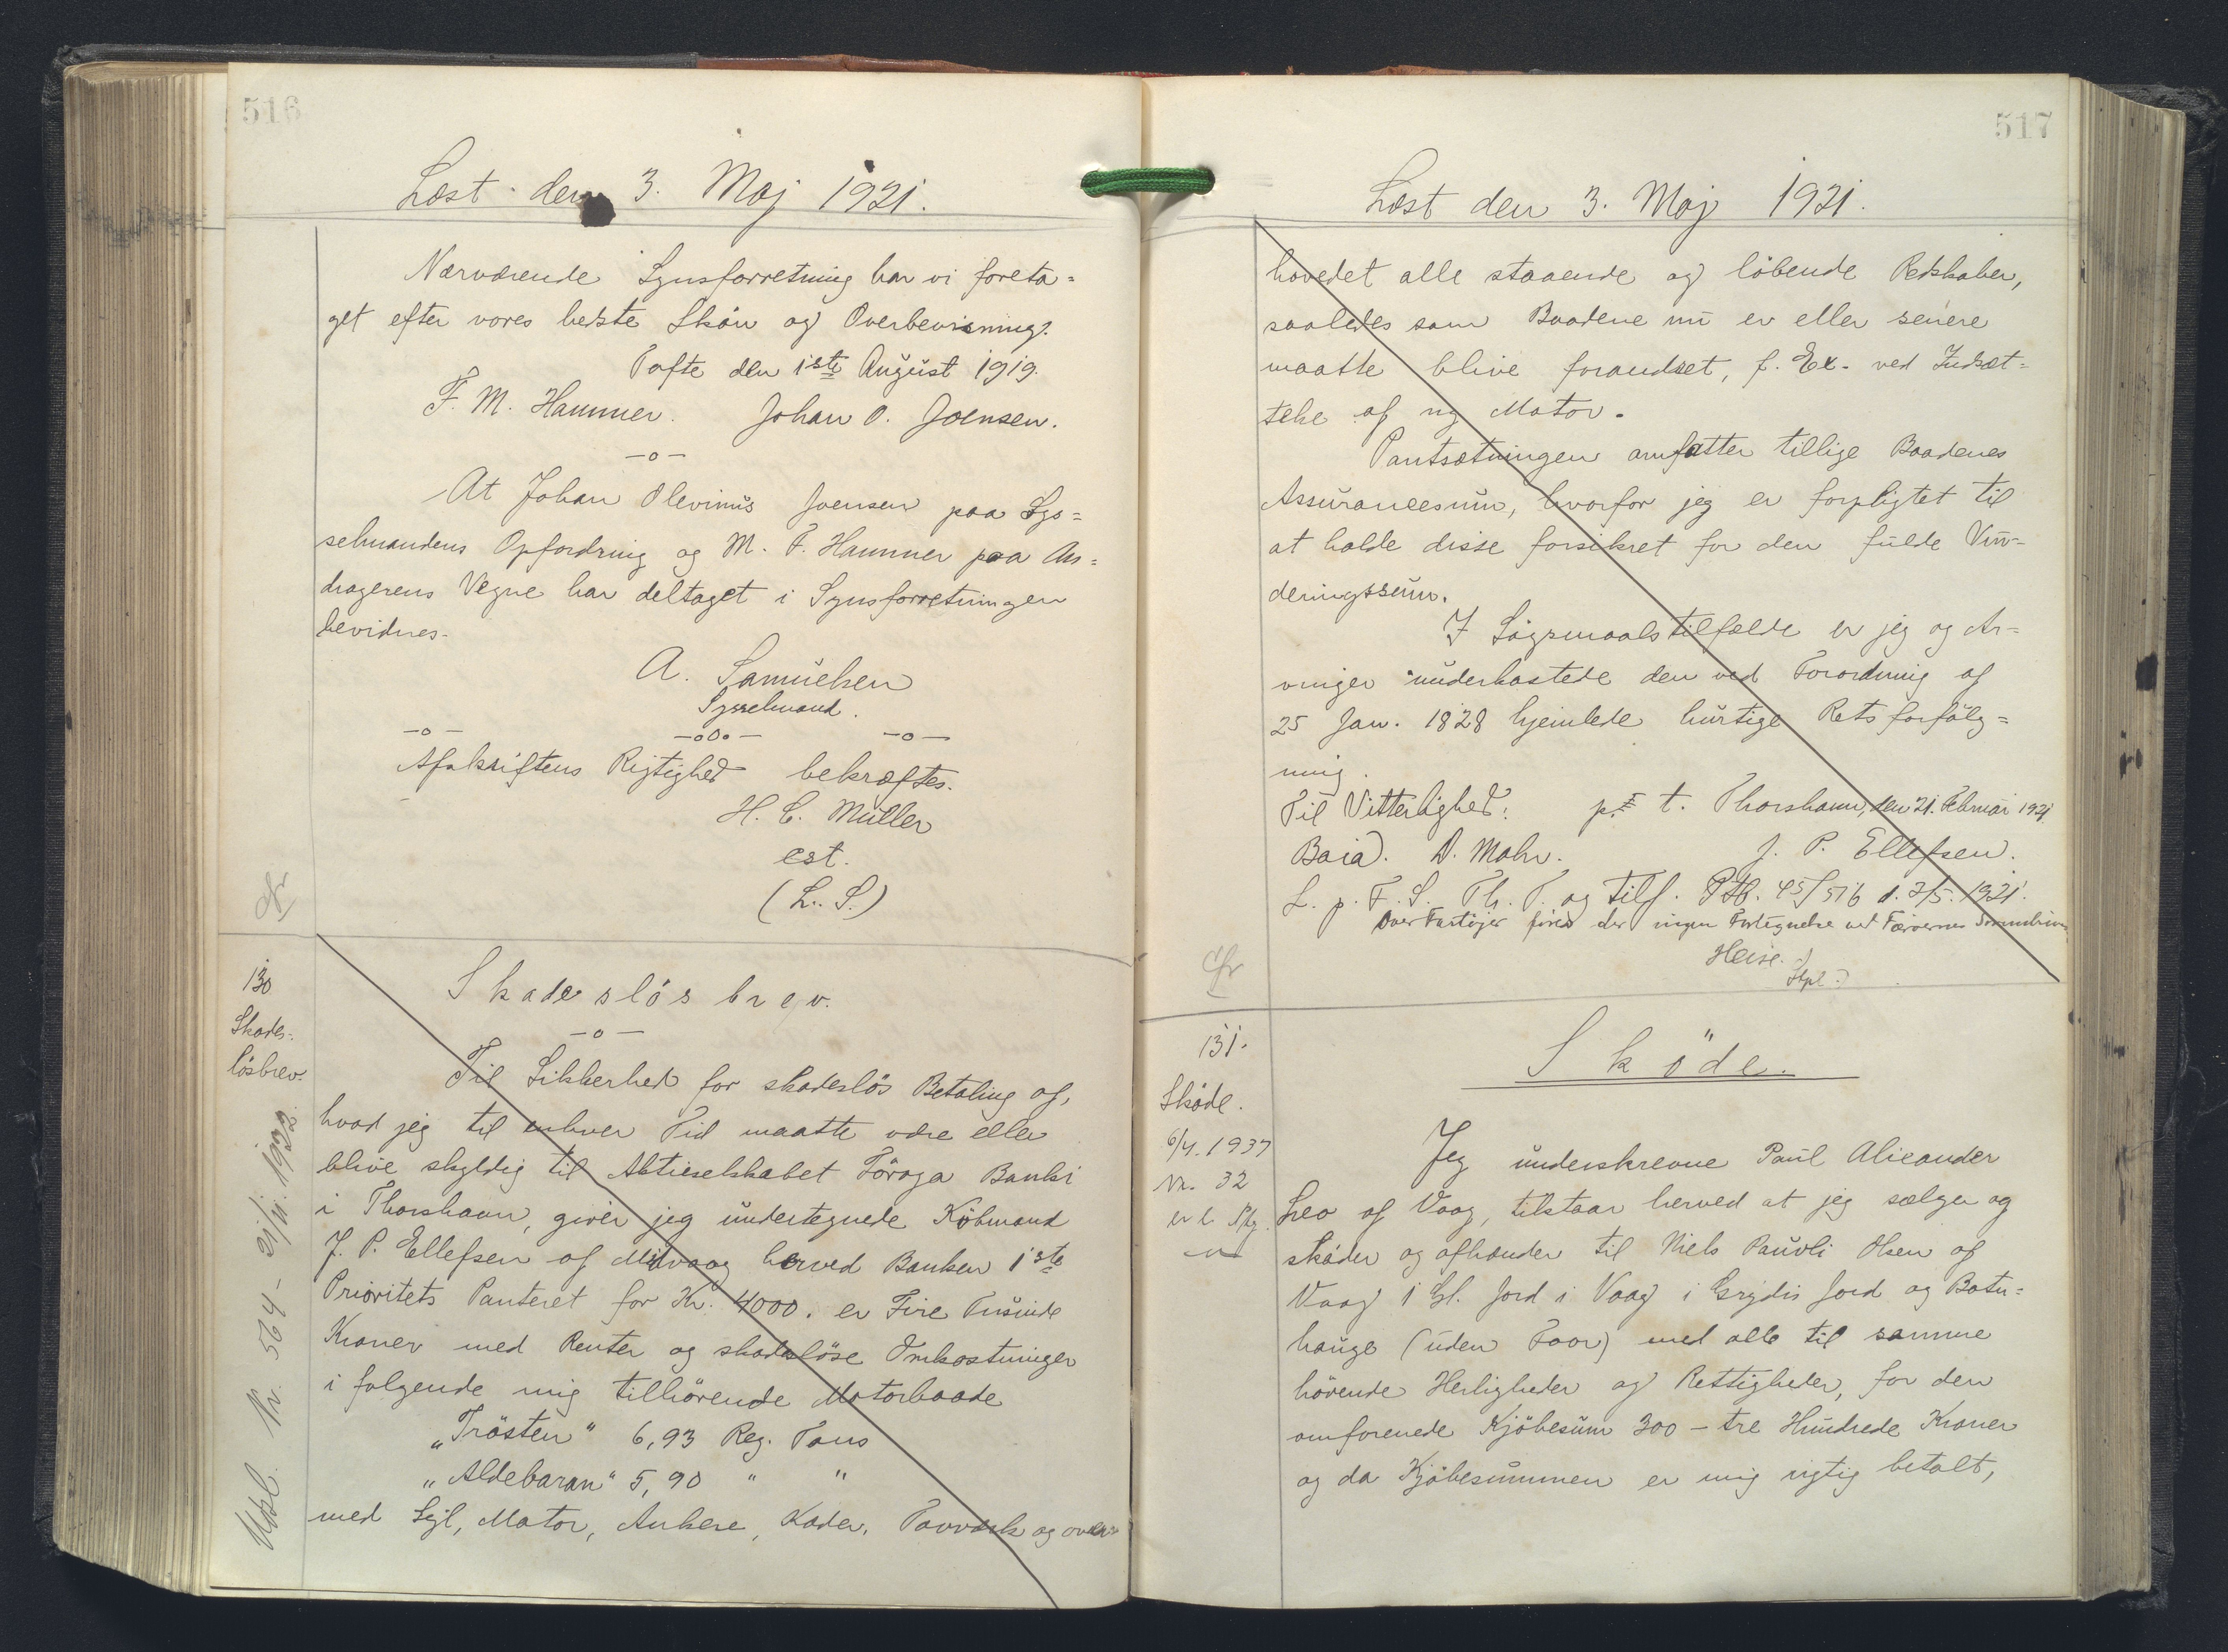 516
Læst den 3. Maj 1921.
Nærværende Synsforretning har vi foreta=
get efter vores bedste Skön og Overbevisning.
Tofte den 1ste August 1919.
F. M. Hammer. Johan O. Joensen.
-o-
At Johan Olevinus Joensen paa Sys=
selmandens Opfordring og M. F. Hammer paa An=
dragerens Vegne har deltaget i Synsforretningen
bevidnes.
A. Samuelsen
Sysselmand.
-o- -oOo- -o-
Afskriftens Rigtighed bekræftes.
H. C. Müller
cst.
(L. S.)
cfr
130
Skades-
lösbrev.
Udsl. Nr. 564 - 21/11. 1922.
Skadeslösbrev.
-o-
Til Sikkerhed for skadeslös Betaling af,
hvad jeg til enhver Tid maatte være eller
blive skyldig til Aktieselskabet Föroya Banki
i Thorshavn, giver jeg undertegnede Köbmand
J. P. Ellefsen af Midvaag herved Banken 1ste
Prioritets Panteret for Kr. 4000. er Fire Tusinde
Kroner med Renter og skadeslöse Omkostninger
i folgende mig tilhörende Motorbaade
"Trösten" 6,93 Reg. Tons
"Aldebaran" 5,90 " "
med Sejl, Motor, Ankere, Kæder, Tovværk og over-
517
Læst den 3. Maj 1921.
hovedet alle staaende og löbende Redskaber,
saaledes som Baadene nu er eller senere
maatte blive forandret, f. Ex. ved Indsæt=
telse af ny Motor.
Pantsætningen omfatter tillige Baadenes
Assurancesum, hvorfor jeg er forpligtet til
at holde disse forsikret for den fulde Vur-
deringssum.
I Sögsmaalstilfælde er jeg og Ar=
vinger underkastede den ved Forordning af
25 Jan. 1828 hjemlede hurtige Retsforfölg=
ning.
Til Vitterlighed: p. t. Thorshavn, den 21. Februar 1921.
Baia. D. Mohr. J. P. Ellefsen.
L. p. F. S. Th. T. og tilf. Ptb. 45/516 d. 3/5. 1921.
Over Fartöjer föres der ingen Fortegnelse ved Færöernes Sorenskriveri
Heise.
Stpl.
cfr
131.
Sköde.
6/4. 1937
Nr. 32
Sköde.
Jeg underskrevne Paul Alexander
Leo af Vaag, tilstaar herved at jeg sælger og
sköder og afhænder til Niels Pauvli Olsen af
Vaag 1 Gl. Jord i Vaag i Grydis Jord og Botn=
hauge (uden Foor) med alle til samme
hörende Herligheder og Rettigheder, for den
omforenede Kjöbesum 300 - tre Hundrede Kroner
og da Kjöbesummen er mig rigtig betalt,